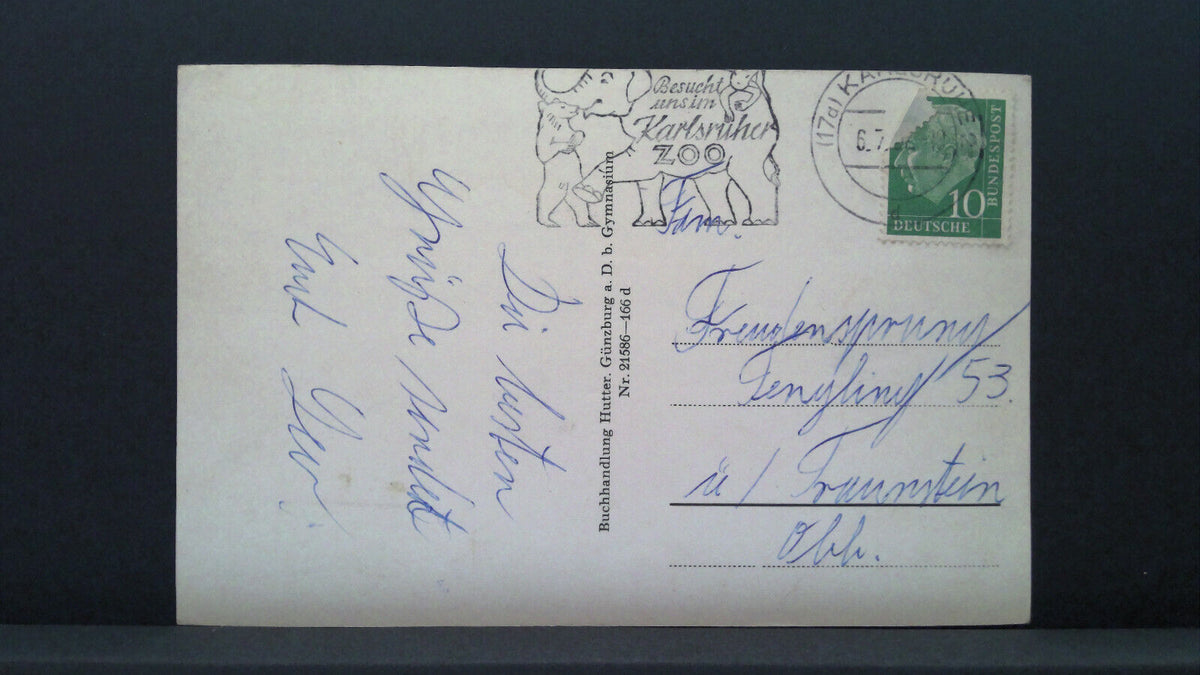 Besucht
uns im
Karlsruher
ZOO
(17a) KARLSRUHE
6.7.
10
DEUTSCHE
BUNDESPOST
Die besten
Grüße sendet
Buchhandlung Hutter. Günzburg a. D. b. Gymnasium
Nr. 21586—166 d
Fam.
Freudensprung
53.
ü/ Traunstein
Obb.